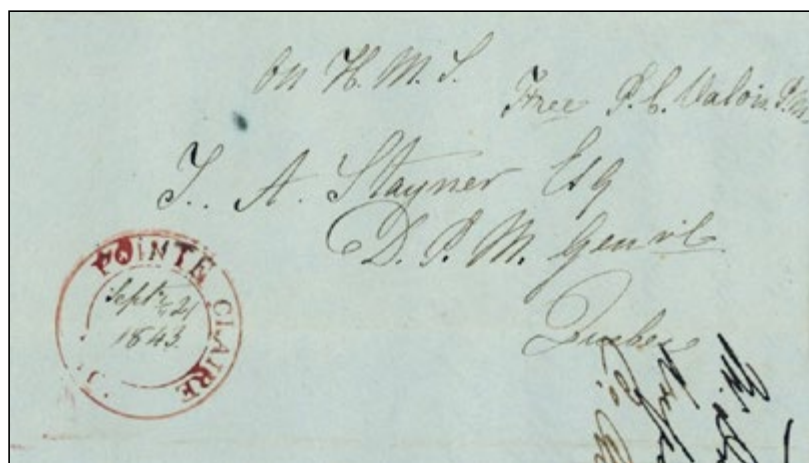 On H. M. S.
Free P. C. Valois P.M.
T. A. Stayner Esq
D. P. M. Genrl
Quebec
POINTE CLAIRE
Septr 21
1843